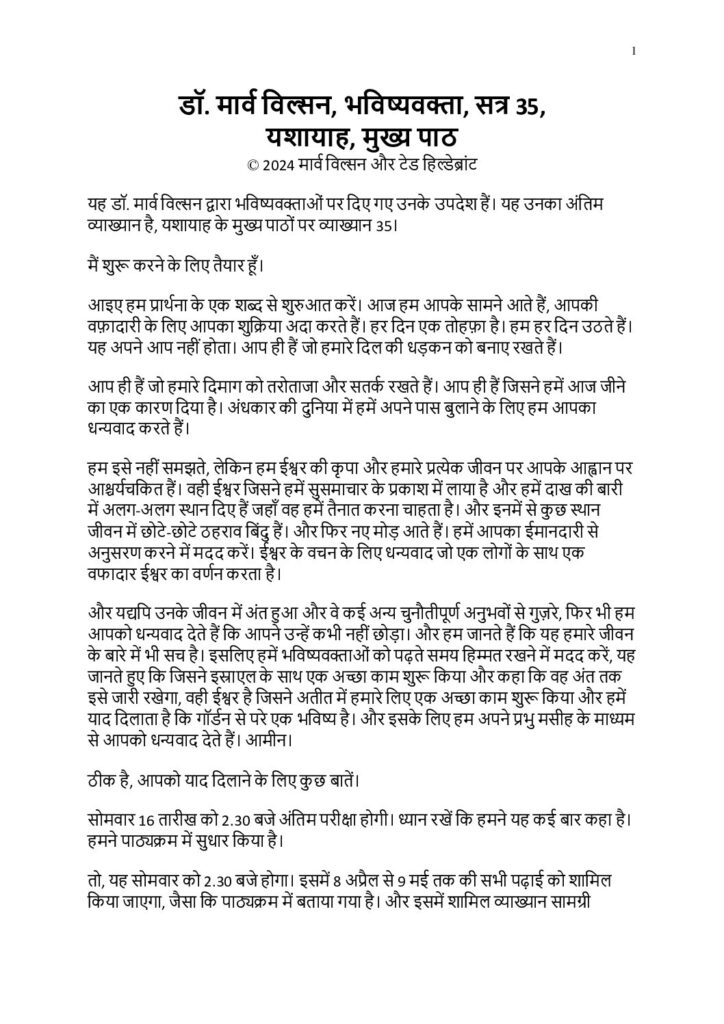 1
डॉ. मार्व विल्सन, भविष्यवक्ता, सत्र 35,
यशायाह, मुख्य पाठ
© 2024 मार्व विल्सन और टेड हिल्डेब्रांट
यह डॉ. मार्व विल्सन द्वारा भविष्यवक्ताओं पर दिए गए उनके उपदेश हैं। यह उनका अंतिम
व्याख्यान है, यशायाह के मुख्य पाठों पर व्याख्यान 35।
मैं शुरू करने के लिए तैयार हूँ।
आइए हम प्रार्थना के एक शब्द से शुरुआत करें। आज हम आपके सामने आते हैं, आपकी
वफ़ादारी के लिए आपका शुक्रिया अदा करते हैं। हर दिन एक तोहफ़ा है। हम हर दिन उठते हैं।
यह अपने आप नहीं होता। आप ही हैं जो हमारे दिल की धड़कन को बनाए रखते हैं।
आप ही हैं जो हमारे दिमाग को तरोताजा और सतर्क रखते हैं। आप ही हैं जिसने हमें आज जीने
का एक कारण दिया है। अंधकार की दुनिया में हमें अपने पास बुलाने के लिए हम आपका
धन्यवाद करते हैं।
हम इसे नहीं समझते, लेकिन हम ईश्वर की कृपा और हमारे प्रत्येक जीवन पर आपके आह्वान पर
आश्चर्यचकित हैं। वही ईश्वर जिसने हमें सुसमाचार के प्रकाश में लाया है और हमें दाख की बारी
में अलग-अलग स्थान दिए हैं जहाँ वह हमें तैनात करना चाहता है। और इनमें से कुछ स्थान
जीवन में छोटे-छोटे ठहराव बिंदु हैं। और फिर नए मोड़ आते हैं। हमें आपका ईमानदारी से
अनुसरण करने में मदद करें। ईश्वर के वचन के लिए धन्यवाद जो एक लोगों के साथ एक
वफादार ईश्वर का वर्णन करता है।
और यद्यपि उनके जीवन में अंत हुआ और वे कई अन्य चुनौतीपूर्ण अनुभवों से गुज़रे, फिर भी हम
आपको धन्यवाद देते हैं कि आपने उन्हें कभी नहीं छोड़ा। और हम जानते हैं कि यह हमारे जीवन
के बारे में भी सच है। इसलिए हमें भविष्यवक्ताओं को पढ़ते समय हिम्मत रखने में मदद करें, यह
जानते हुए कि जिसने इस्राएल के साथ एक अच्छा काम शुरू किया और कहा कि वह अंत तक
इसे जारी रखेगा, वही ईश्वर है जिसने अतीत में हमारे लिए एक अच्छा काम शुरू किया और हमें
याद दिलाता है कि गॉर्डन से परे एक भविष्य है। और इसके लिए हम अपने प्रभु मसीह के माध्यम
से आपको धन्यवाद देते हैं। आमीन।
ठीक है, आपको याद दिलाने के लिए कुछ बातें।
सोमवार 16 तारीख को 2.30 बजे अंतिम परीक्षा होगी। ध्यान रखें कि हमने यह कई बार कहा है।
हमने पाठ्यक्रम में सुधार किया है।
तो, यह सोमवार को 2.30 बजे होगा। इसमें 8 अप्रैल से 9 मई तक की सभी पढ़ाई को शामिल
किया जाएगा, जैसा कि पाठ्यक्रम में बताया गया है। और इसमें शामिल व्याख्यान सामग्री